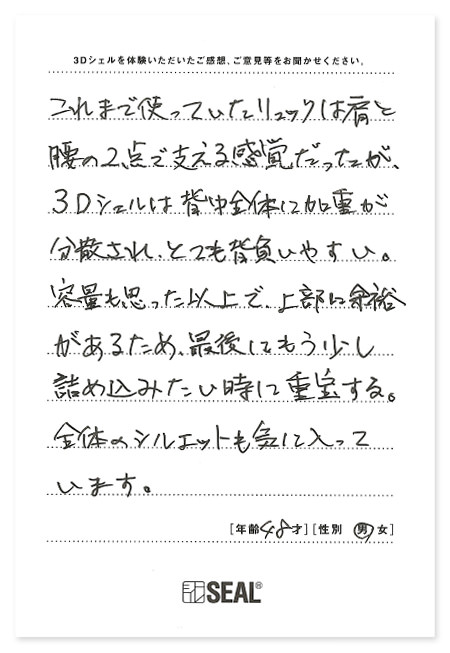 3Dシェルを体験いただいたご感想、ご意見等をお聞かせください。
これまで使っていたリュックは肩と
腰の2点で支える感覚だったが、
3Dシェルは背中全体に加重が
分散され、とても背負いやすい。
容量も思った以上で、上部に余裕
があるため、最後にもう少し
詰め込みたい時に重宝する。
全体のシルエットも気に入って
います。
[年齢48才][性別 男 女]
SEAL®